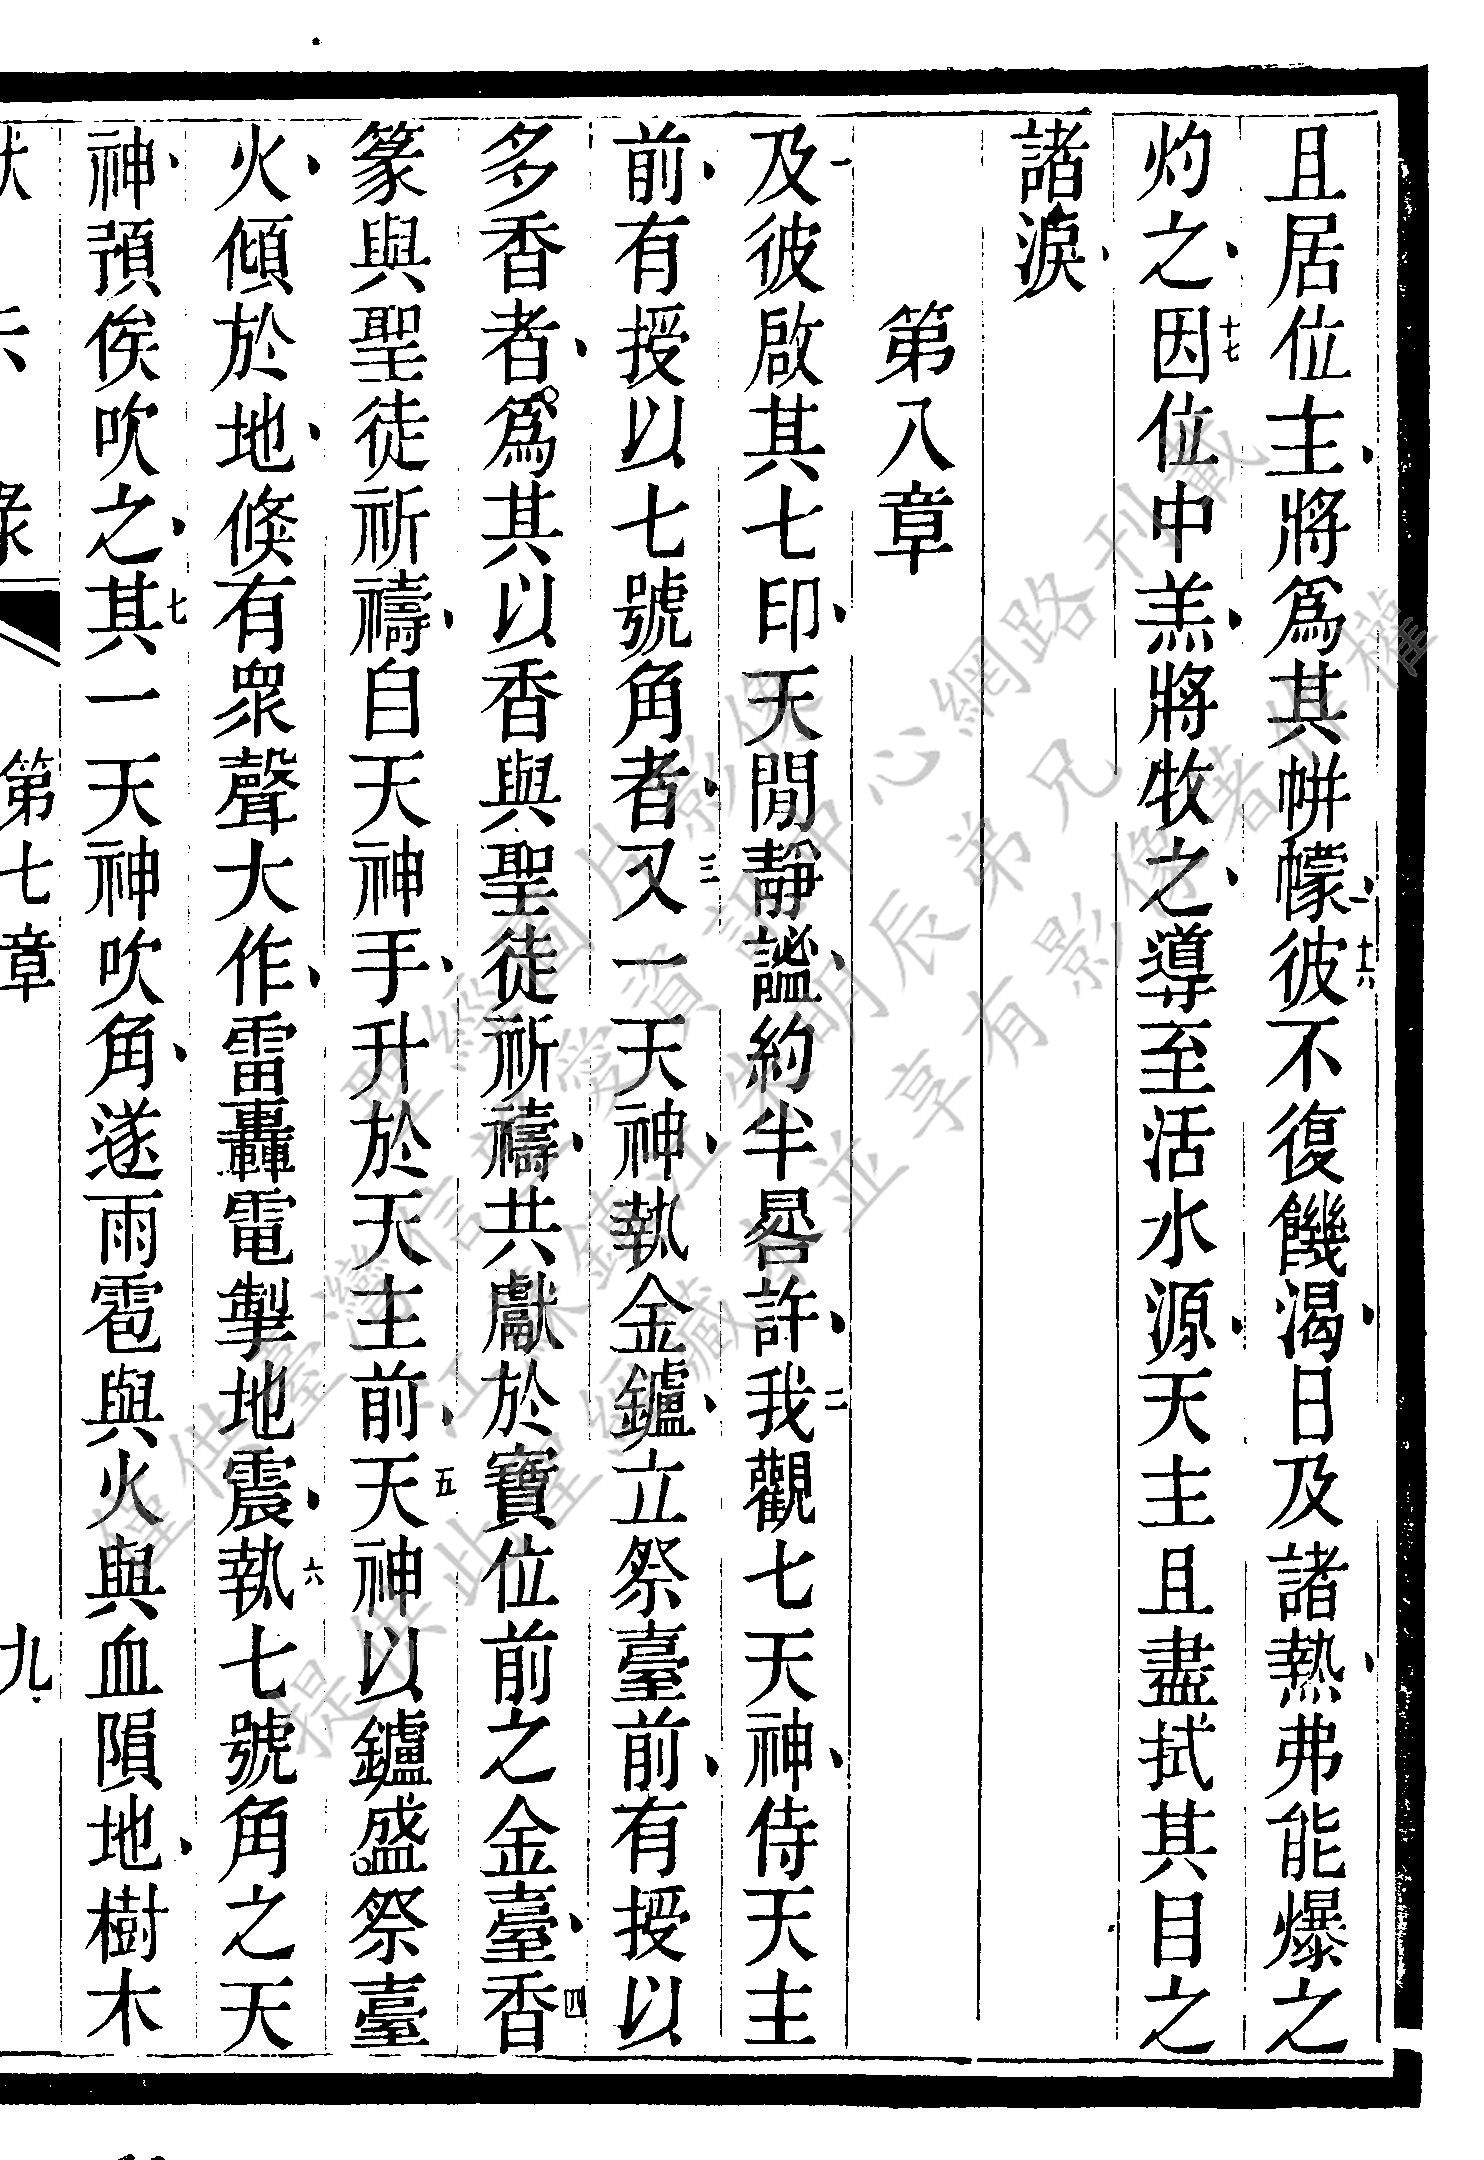 且居位主、將爲其帡幪、十六彼不復饑渴、日及諸熱、弗能爆之
灼之、十七因位中羔、將牧之、導至活水源、天主且盡拭其目之
諸淚、
第八章
一及彼啟其七印、天閒靜謐、約半晷許、二我觀七天神、侍天主
前、有授以七號角者、三又一天神、執金鑪、立祭臺前、有授以
多香者、爲其以香與聖徒祈禱、共獻於寶位前之金臺、四香
篆與聖徒祈禱、自天神手、升於天主前、五天神以鑪盛祭臺
火、傾於地、倏有衆聲大作、雷轟電掣地震、六執七號角之天
神、預俟吹之、七其一天神吹角、遂雨雹與火與血隕地、樹木
第七章 九
僅供臺灣信望愛資訊中心網路刊載
提供此聖經藏書並享有影像著作權